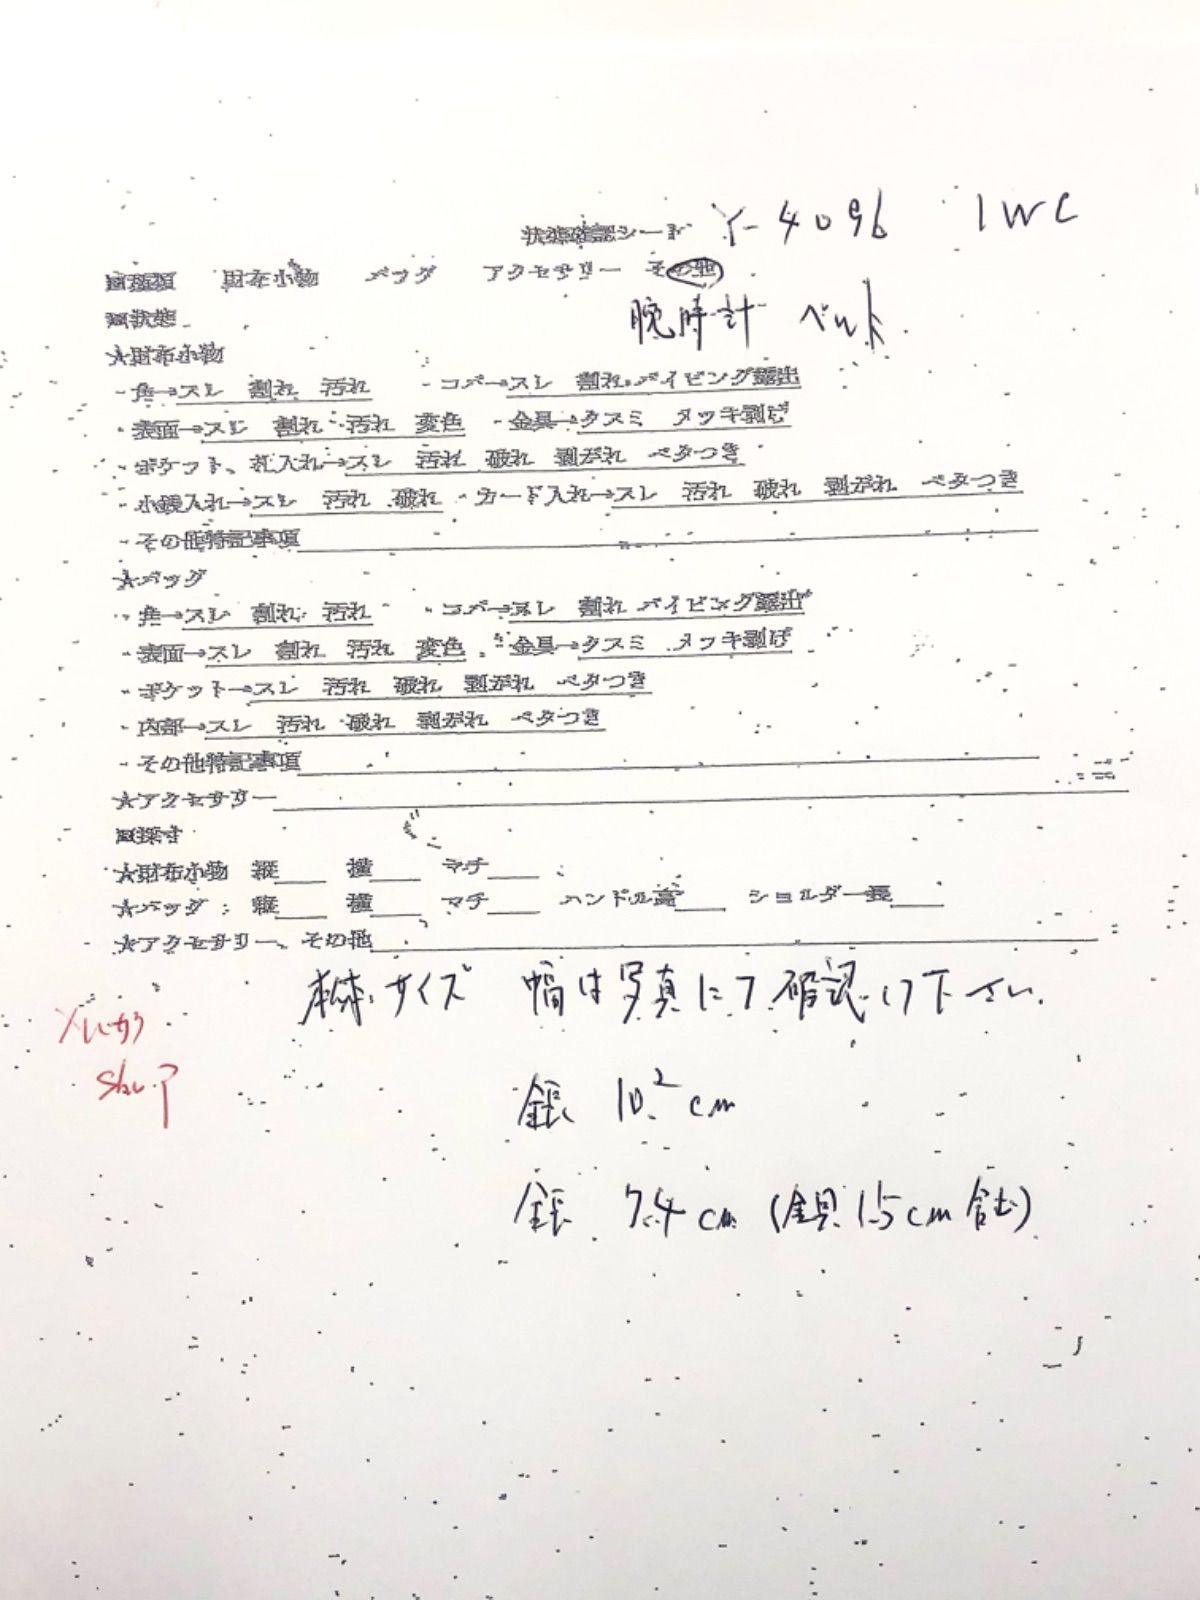 状態確認シート Y-4096 IWC
■種類 財布小物 バッグ アクセサリー その他
■状態 腕時計 ベルト
★財布小物
・角→スレ 割れ 汚れ ・コバ→スレ 割れ パイピング露出
・表面→スレ 割れ 汚れ 変色 ・金具→クスミ メッキ剥げ
・ポケット、札入れ→スレ 汚れ 破れ 剥がれ ベタつき
・小銭入れ→スレ 汚れ 破れ ・カード入れ→スレ 汚れ 破れ 剥がれ ベタつき
・その他特記事項
★バッグ
・角→スレ 割れ 汚れ ・コバ→スレ 割れ パイピング露出
・表面→スレ 割れ 汚れ 変色 ・金具→クスミ メッキ剥げ
・ポケット→スレ 汚れ 破れ 剥がれ ベタつき
・内部→スレ 汚れ 破れ 剥がれ ベタつき
・その他特記事項
★アクセサリー
■採寸
★財布小物 縦 横 マチ
★バッグ: 縦 横 マチ ハンドル高 ショルダー長
★アクセサリー、その他
サイズ 幅は写真にて確認して下さい.
10.2 cm
7.4 cm (金具 1.5cm 含む)